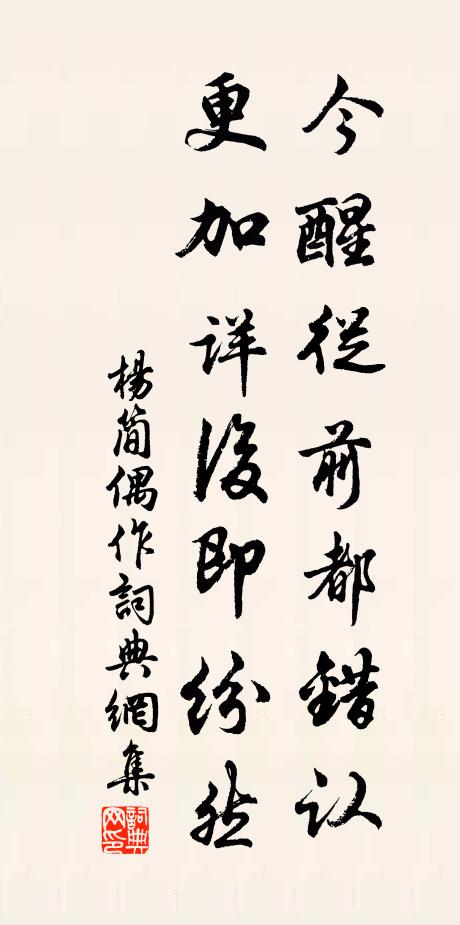 今醒從前都錯认
更加详後即纷然
楊简偶作詞典網集
詞典網印